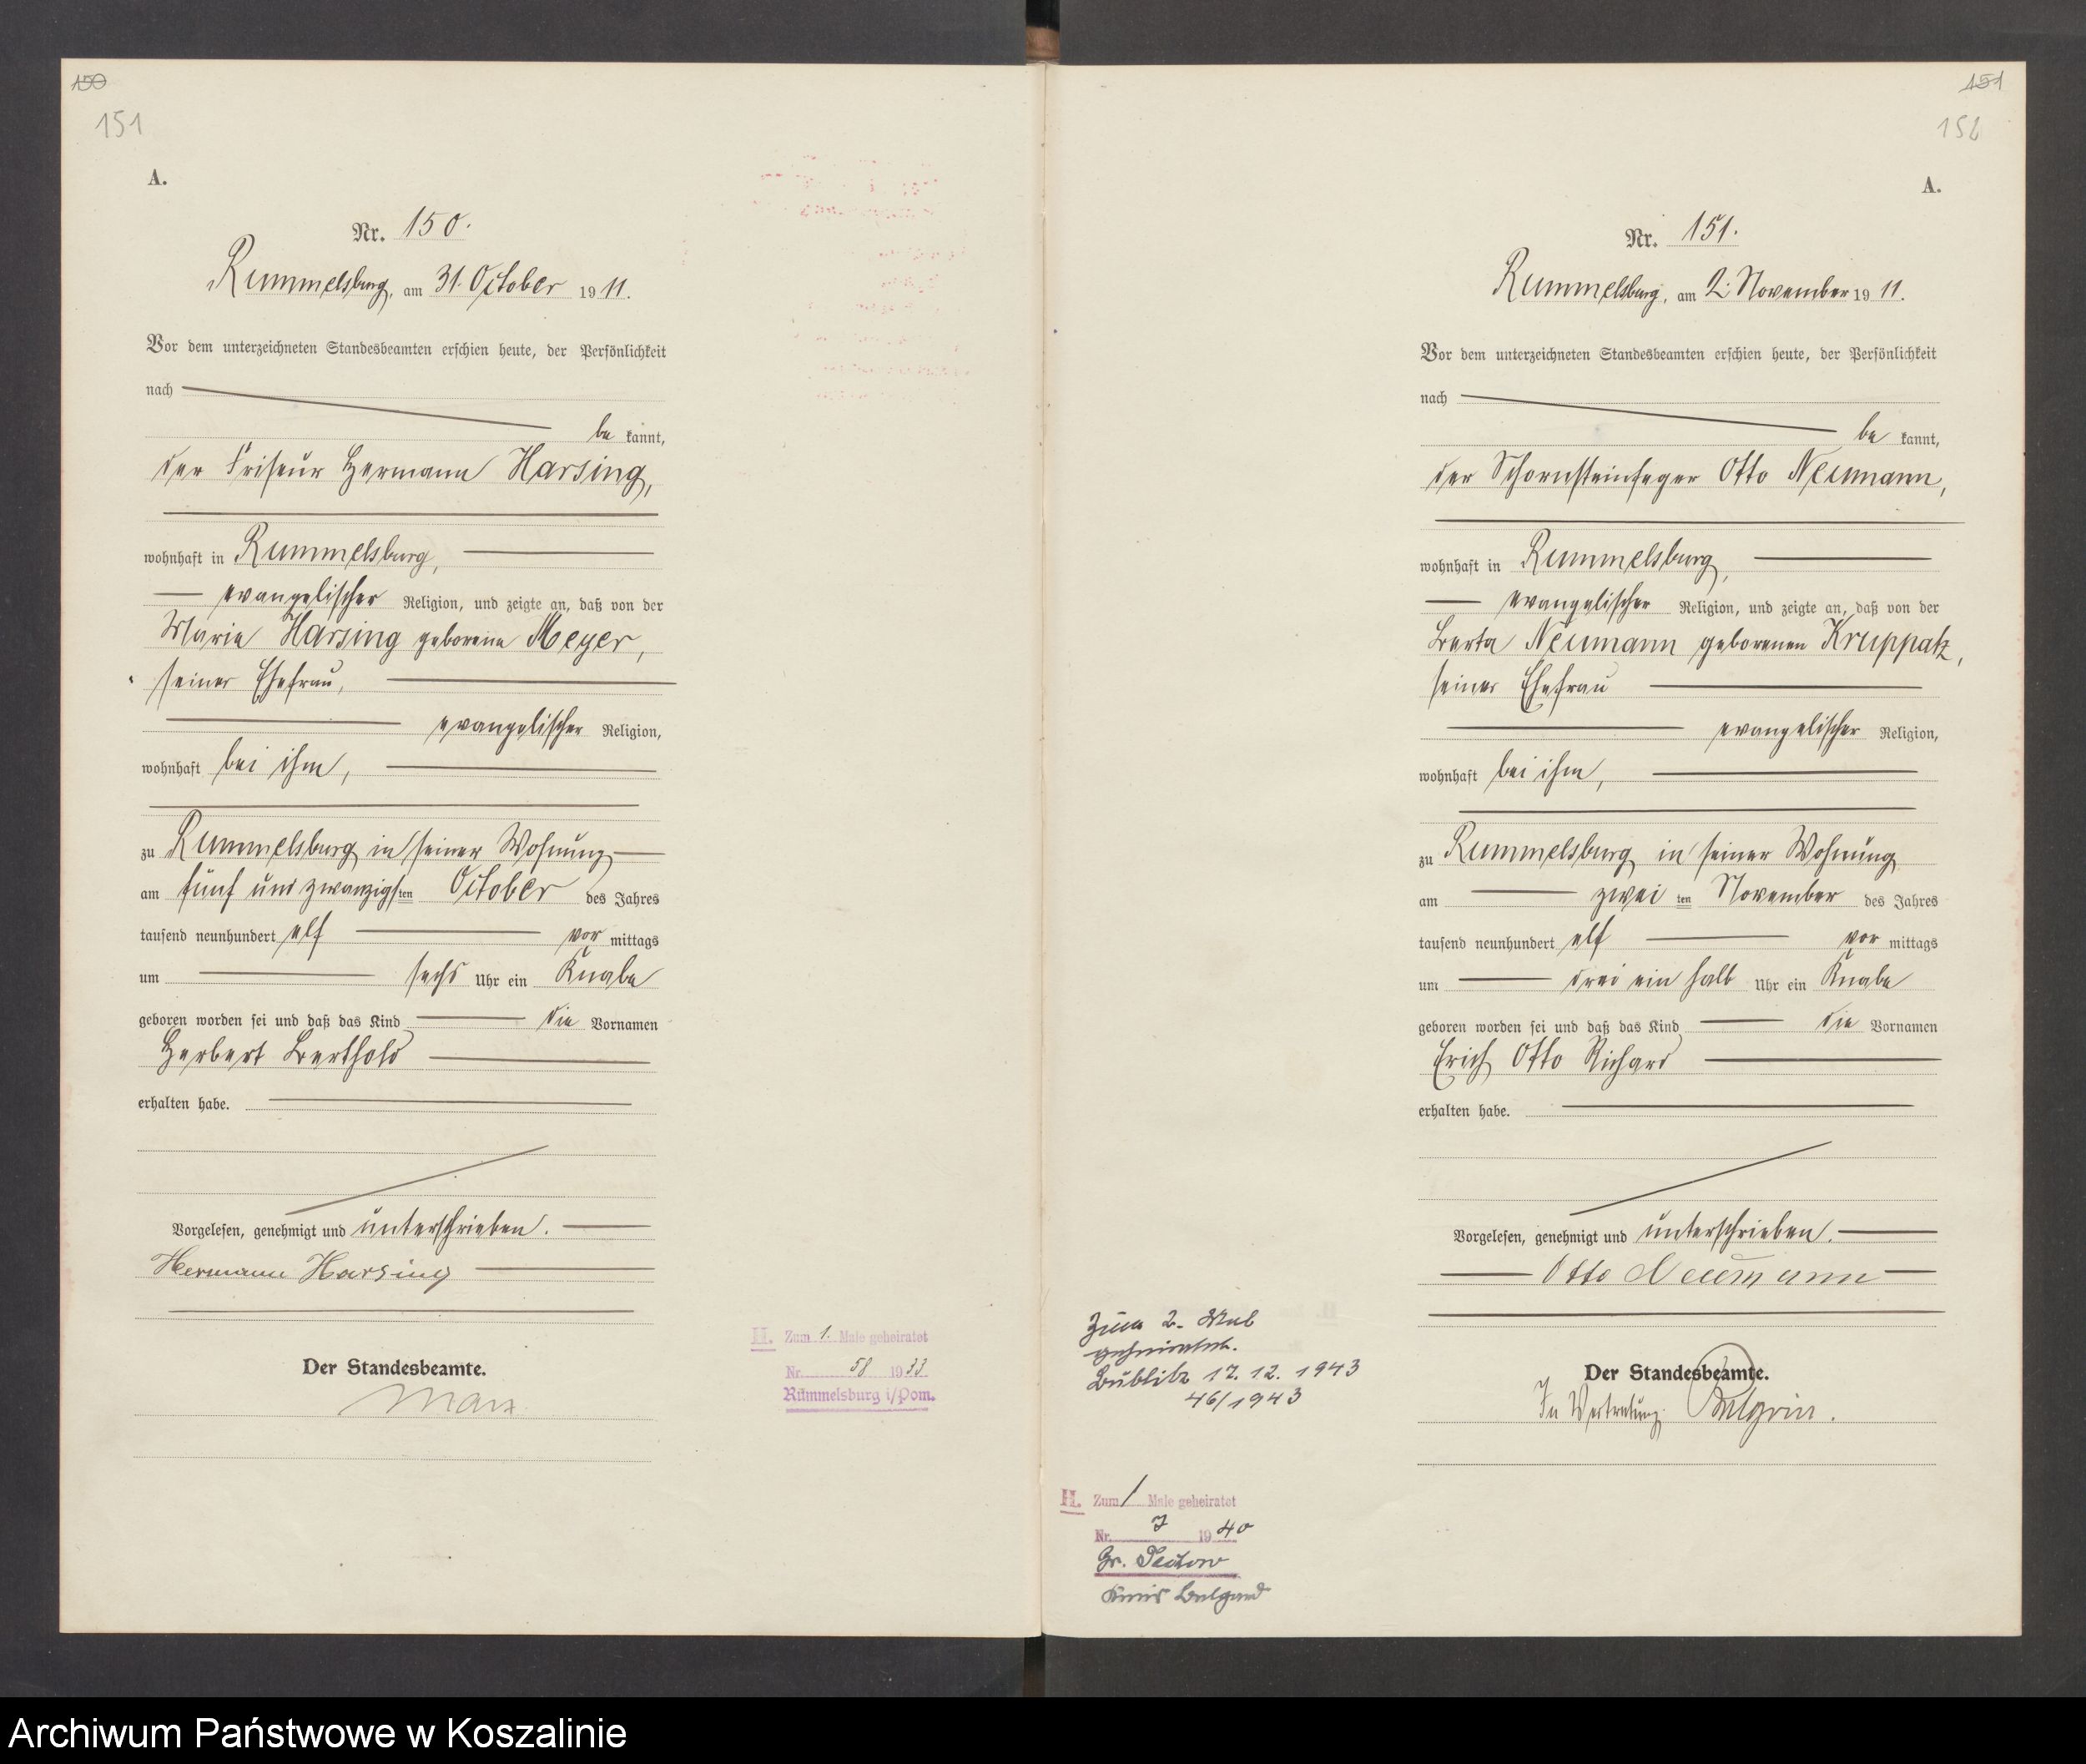 150
151
A.
Nr. 150.
Rummelsburg, am 31. October 1911.
Vor dem unterzeichneten Standesbeamten erschien heute, der Persönlichkeit
nach
be kannt,
der Friseur Hermann Harsing,
wohnhaft in Rummelsburg,
evangelischer Religion, und zeigte an, daß von der
Marie Harsing geborene Meyer,
seiner Ehefrau,
evangelischer Religion,
wohnhaft bei ihm,
zu Rummelsburg in seiner Wohnung
am fünf und zwanzigsten October des Jahres
tausend neunhundert elf vor mittags
um sechs Uhr ein Knabe
geboren worden sei und daß das Kind die Vornamen
Herbert Berthold
erhalten habe.
Vorgelesen, genehmigt und unterschrieben.
Hermann Harsing
Der Standesbeamte.
Marx
H. Zum 1. Male geheiratet
Nr. 58 1933
Rummelsburg i/Pom.
151
152
A.
Nr. 151.
Rummelsburg, am 2. November 1911.
Vor dem unterzeichneten Standesbeamten erschien heute, der Persönlichkeit
nach
be kannt,
der Schornsteinfeger Otto Neumann,
wohnhaft in Rummelsburg,
evangelischer Religion, und zeigte an, daß von der
Berta Neumann geborenen Kruppatz,
seiner Ehefrau
evangelischer Religion,
wohnhaft bei ihm,
zu Rummelsburg in seiner Wohnung
am zwei ten November des Jahres
tausend neunhundert elf vor mittags
um drei ein halb Uhr ein Knabe
geboren worden sei und daß das Kind die Vornamen
Erich Otto Richard
erhalten habe.
Vorgelesen, genehmigt und unterschrieben.
Otto Neumann
Der Standesbeamte.
In Vertretung.
Zum 2. Mal
geheiratet.
Bublitz 17. 12. 1943
46/1943
H. Zum 1 Male geheiratet
Nr. 7 1940
Gr.
Kreis Belgard
Archiwum Państwowe w Koszalinie